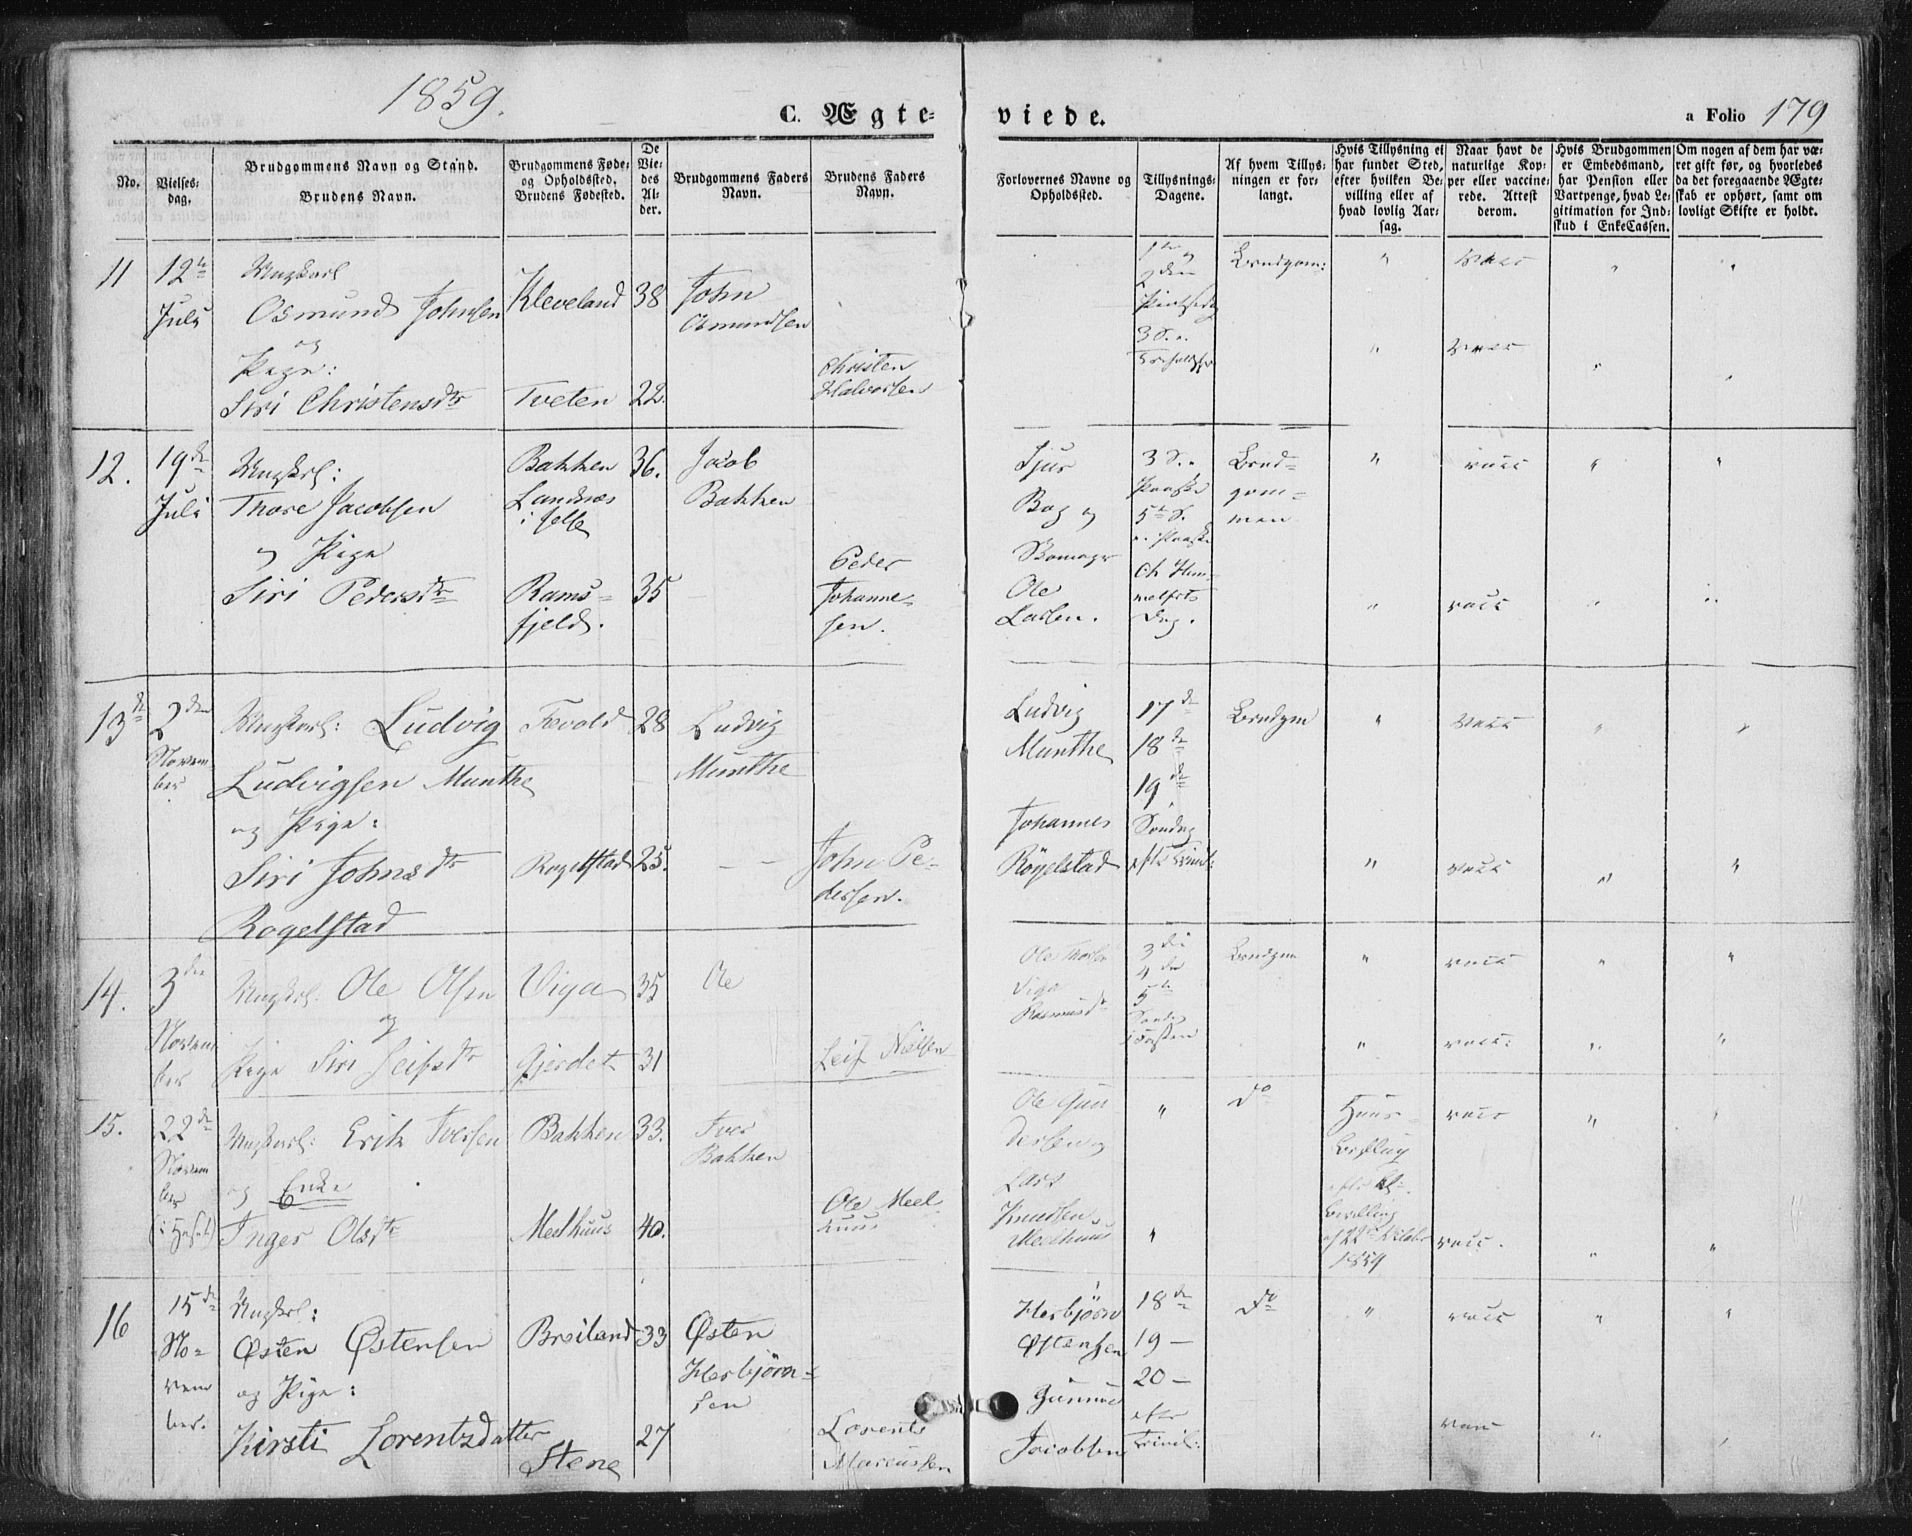 1859.
C. Ægte-
viede.
a Folio 179
No.
Vielses-
dag.
Brudgommens Navn og Stand.
Brudens Navn.
Brudgommens Føde-
og Opholdssted.
Brudens Fødested.
De
Vie-
des
Al-
der.
Brudgommens Faders
Navn.
Brudens Faders
Navn.
Forlovernes Navne og
Opholdssted.
Tillysnings-
Dagene.
Af hvem Tillys-
ningen er for-
langt.
Hvis Tillysning ei
har fundet Sted,
efter hvilken Be-
villing eller af
hvad lovlig Aar-
sag.
Naar havt de
naturlige Kop-
per eller vaccine-
rede. Attest
derom.
Hvis Brudgommen
er Embedsmand,
har Pension eller
Vartpenge, hvad Le-
gitimation for Ind-
skud i EnkeCassen.
Om nogen af dem har væ-
ret gift før, og hvorledes
da det foregaaende Ægte-
skab er ophørt, samt om
lovligt Skifte er holdt.
11
12te
Juli
Ungkarl
Osmund Johnsen
og
Pige:
Siri Christensdtr
Kleveland
Tveten
38
22.
John
Osmundsen
Christen
Halvorsen
Brudgom:
" vacc " "
" vacc " "
12.
19de
Juli
Ungkrl:
Thore Jacobsen
og Pige
Siri Pedersdtr
Bakken
Landnæs
i
Rams-
fjeld.
36.
35
Jacob
Bakken
Peder
Johanne-
sen.
Sjur
Bag og
Skomager
Ole
Larsen.
3 S. e.
Paaske
5te S.
e. Paaske
Ch Him-
melfrts
Dag.
Brud-
gom-
men
" vacc " "
" vacc " "
13de
2den
Novem
ber
Ungkarl: Ludvig
Ludvigsen Munthe
og Pige:
Siri Johnsdtr
Rogelstad
Fævold
Rogelstad
28
25.
Ludvig
Munthe
John Pe-
dersen.
Ludvig
Munthe
Johannes
Rögelstad
17de
18de
19de
Söndag
eftr Trinit:
Brudgm
" vacc " "
" vacc " "
14.
3die
Novem
ber
Ungkrl. Ole Olsen
og
Pige Siri Leifsdtr
Viga
Gjerdet
35
31
Ole
Leif Nielsen
Ole
Viga
3die
4de
5te
Söndag
i Fasten
Brudgm
" vacc " "
" vacc. " "
15.
22de
Novem
ber
Ungkarl: Erik Iversen
og Enke
Inger Olsdtr
Bakken
Meelhuus
33.
40.
Iver
Bakken
Ole Meel
huus
Ole Gun
dersen og
Lars
Knudsen
Meelhuus
"
"
Do
Huus-
Bevilling
1859
vacc " "
vacc. " "
16
15de
No-
vem
ber.
Ungkrl:
Østen Østensen
og Pige:
Kirsti Lorentzdatter
Breiland
Stene
33
27
Østen
Herbjörn-
sen
Lorents
Marcussen
Herbjörn
Østensen
Gunnar
Jacobsen
18de
19 —
20 —
efter
Trinit:
Do
" vacc " "
vacc " "